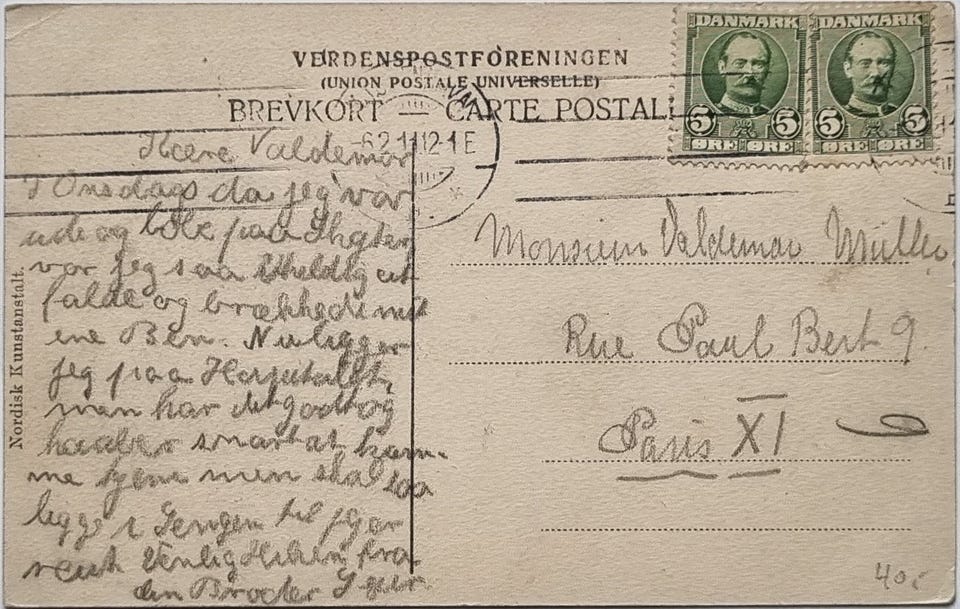 DANMARK DANMARK
5 5 5 5
ØRE ØRE ØRE ØRE
VERDENSPOSTFORENINGEN
(UNION POSTALE UNIVERSELLE)
BREVKORT — CARTE POSTALE
6.2.11 12-1 E
Kære Valdemar
I Onsdags da jeg var
ude og løbe paa
var jeg saa uheldig at
falde og brækkede mit
ene Ben. Nu ligger
jeg paa Hospitalet,
man har det godt og
haaber snart at kom-
me hjem men skal saa
ligge i Sengen til jeg er
rask Venlig Hilsen fra
din Broder
Monsieur Valdemar Müller
Rue Paul Bert 9.
Paris XI
Nordisk Kunstanstalt.
40